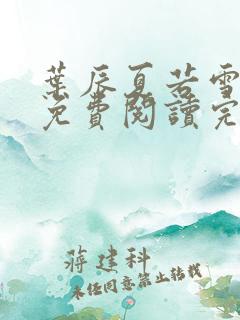 葉辰夏若雪
免費閱讀完
蔣建科
未經同意禁止轉載